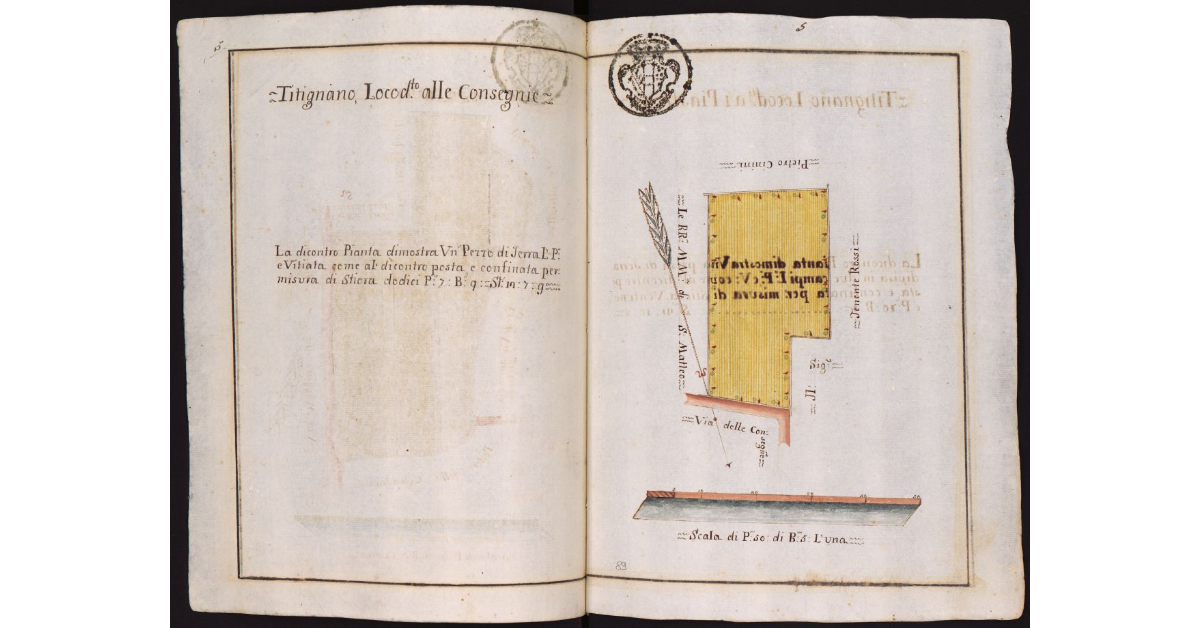 5.
~Titignano, Loco d.to alle Consegnie~
La dicontro Pianta dimostra Vn' Pezzo di Terra L: P:
e Vitiata come al dicontro posta e confinata per
misura di Stiora dodici P: 7: B: 9: St: 12: 7: 9
5.
Pietro Cinini
Le RR: MM: di S: Matteo
Tenente Rossi
Il Sig.e
Via delle Con:
Scala di P: 50: di B: 5: L'una
89